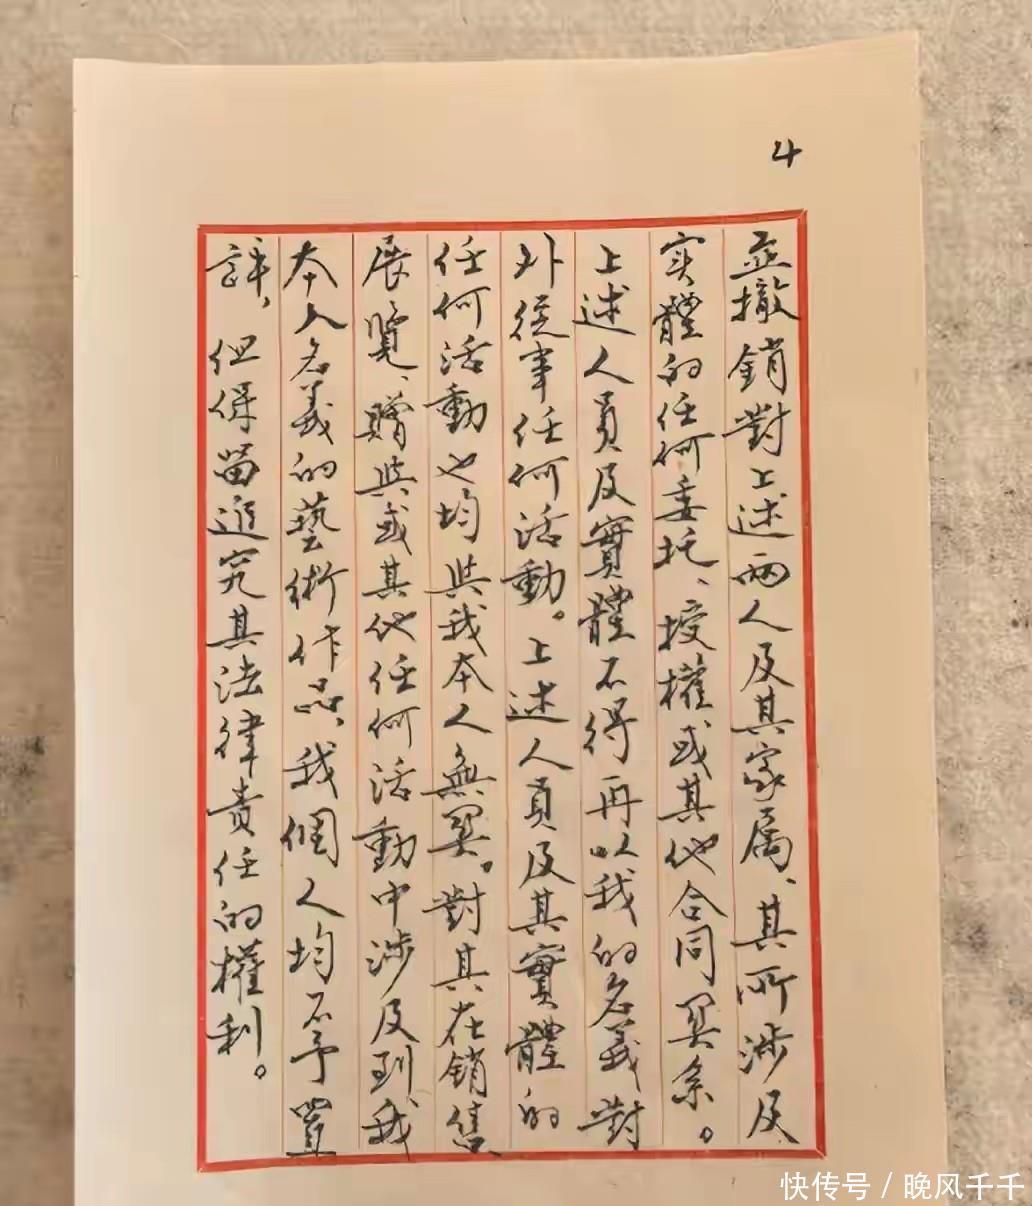 4
并撤銷對上述兩人及其家属、其所涉及
实體的任何委托、授權或其他合同関系。
上述人員及實體不得再以我的名義對
外從事任何活動。上述人員及其實體的
任何活動也均與我本人無関。對其在銷售
展覽、贈與或其他任何活動中涉及到我
本人名義的藝術作品，我個人均不予置
評，但保留追究其法律責任的權利。
快传号 / 晚风千千